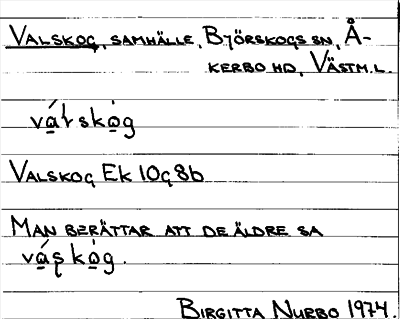 VALSKOG, SAMHÄLLE, BJÖRSKOGS SN, Å-
KERBO HD, VÄSTM.L.
vá̱ƚskò̱g
VALSKOG Ek 10g8b
MAN BERÄTTAR ATT DE ÄLDRE SA
vá̱ʂkò̱g.
BIRGITTA NURBO 1974.